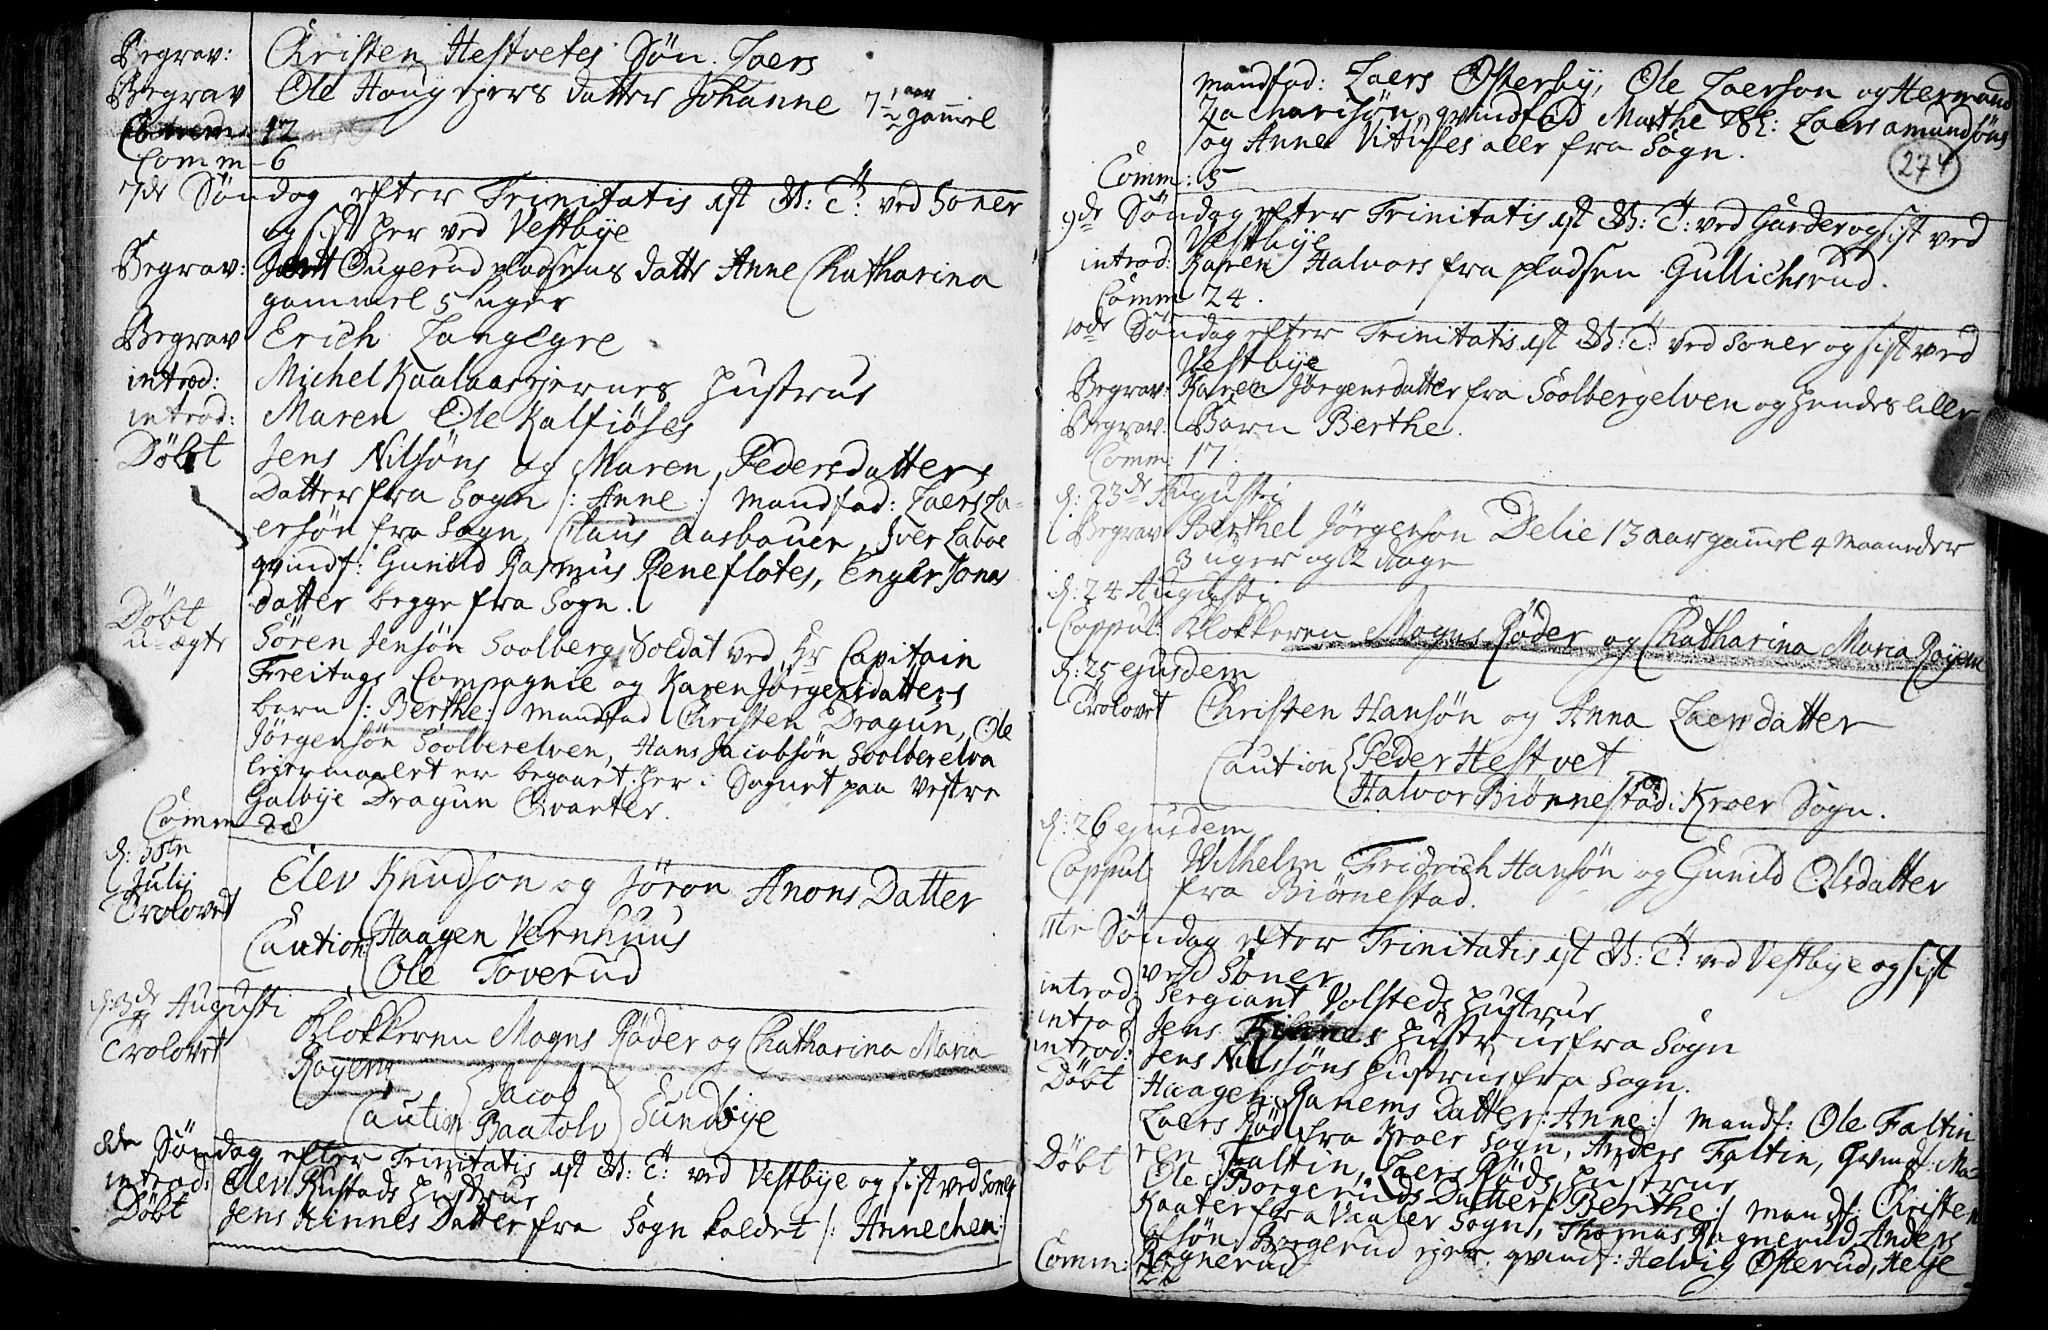 Begrav: Christen Hestvetes Søn. Laers
Begrav Ole Haugejers datter Johanne 7 1/2 aar gam̄el
12
Comm 6
7de Søndag efter Trinitatis 1st W: T: ved Soner
og sist her ved Vestbye
Begrav: Ougerud pladsens datter Anne Chatharina
gammel 5 uger
Begrav Erich Langegre
introd: Michel Kaalaasejernes hustrue
introd: Maren Ole Kalfiøses
Døbt Jens Nilsøns og Maren Pedersdatters
Datter fra Sogn /: Anne :/ mandfad: Laers La-
ersøn fra Sogn, Claus Aasbauen, Iver Laboe
qvindf: Gunild Rasmus Reneflotes, Engler Jons
datter begge fra Sogn.
Døbt
u-ægte Søren Jensøn Soolberg Soldat ved Hr Capitain
Freitags Compagnie og Karen Jørgensdatters
barn /: Berthe :/ mandfad Christen Dragun, Ole
Jørgensøn Soolberelven, Hans Jacobsøn Soolberelva
lejermaalet er begaaet her i Sognet paa Vestre
Galbye Dragun Qvarter.
Comm 28
d: 30te
Julij
Trolovet Elev Knudson og Jøron Anons Datter
Caution Haagen Vernhuus
Ole Toverud
d: 3de Augusti
Trolovet Klokkeren Mogns Røder og Chatharina Maria
Royem
Caution Jacob
Baatolv Sundbye
8de Søndag efter Trinitatis 1st W: T: ved Vestbye og sist ved Soner
introd: Elev Rustads hustrue
Døbt Jens Kinnes Datter fra Sogn kaldet /: Annechen :/
mandfad: Laers Østerby, Ole Laerson og Hermand
Zachariasøn, qvindfad Marthe Laers amundsøns
og Anne Vituses alle fra Sogn.
274
Comm: 5
9de Søndag efter Trinitatis 1st W: T: ved Garder og sist ved
Vestbye
introd: Karen Halvors fra pladsen Gullichsrud.
Comm 24.
10de Søndag efter Trinitatis 1st W: T: ved Soner og sist ved
Vestbye
Begrav: Karen Jørgensdatter fra Soolbergelven og hendes lille
Begrav: Barn Berthe.
Comm: 17.
d: 23de Augusti
Begrav Berthel Jørgenson Delie 13 aar gam̄el 4 maaneder
3 uger og 2 dage
d: 24 Augusti
Coppul: Klokkeren Mogns Røder og Chatharina Maria Royem
d: 25 ejusdem
Trolovet Christen Hansøn og Anna Laersdatter
Caution Peder Hestvet
Halvor Biørnestad i Kroer Sogn.
d: 26 ejusdem
Coppul: Vilhelm Fridrich Hansøn og Gunild Olsdatter
fra Biørnestad.
11te Søndag efter Trinitatis 1st W: T: ved Vestbye og sist
ved Soner
introd: Sergiant Volsteds hustrue
introd: Jens Kinnes hustrue fra Sogn
introd: Jens Nilssøns hustrue fra Sogn.
Døbt Haagen Ranems Datter /: Anne :/ mandf: Ole Faltin
Laers Rød fra Kroer Sogn, Anders Faltin, qvindf: Ma-
ren Faltin, Laers Røds hustrue
Døbt Ole Borgeruds Datter /: Berthe :/ mandf: Christen
Kaater fra Vaaler Sogn, Thomas Ragnerud, Anders
Borgerud ejer. qvindf: Helvig Østerud, Helje
Ragnerud
Comm: 22